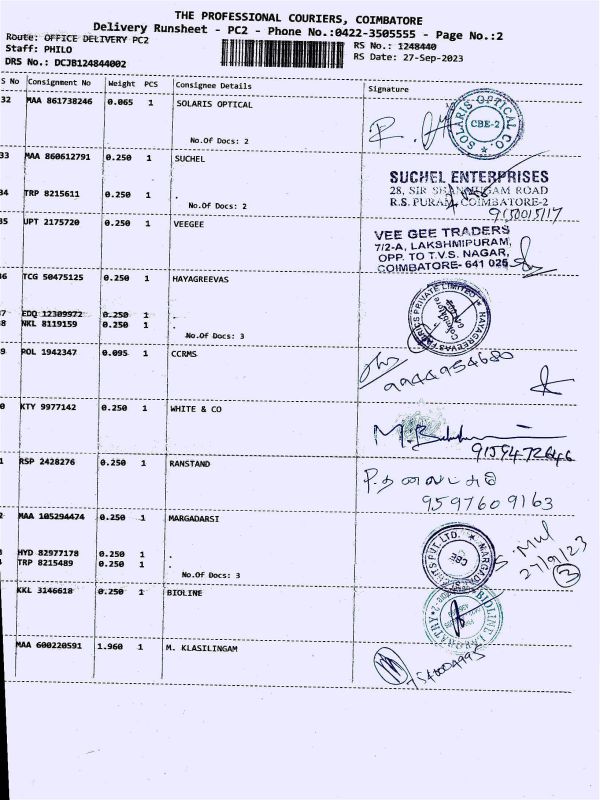 THE PROFESSIONAL COURIERS, COIMBATORE
Delivery Runsheet - PC2 - Phone No.:0422-3505555 - Page No.:2
Route: OFFICE DELIVERY PC2
Staff: PHILO
DRS No.: DCJB124844002
RS No.: 1248440
RS Date: 27-Sep-2023
S No Consignment No Weight PCS Consignee Details Signature
32 MAA 861738246 0.065 1 SOLARIS OPTICAL
No.Of Docs: 2
SOLARIS OPTICAL CO.
CBE-2
33 MAA 860612791 0.250 1 SUCHEL
34 TRP 8215611 0.250 1 .
No.Of Docs: 2
SUCHEL ENTERPRISES
28, SIR SHANMUGAM ROAD
R.S. PURAM, COIMBATORE-2
9150015117
35 UPT 2175720 0.250 1 VEEGEE
VEE GEE TRADERS
7/2-A, LAKSHMIPURAM,
OPP. TO T.V.S. NAGAR,
COIMBATORE- 641 025
36 TCG 50475125 0.250 1 HAYAGREEVAS
37 EDQ 12309972 0.250 1 .
38 NKL 8119159 0.250 1 .
No.Of Docs: 3
HAYAGREEVAS FABRICS PRIVATE LIMITED
Coimbatore
9 POL 1942347 0.095 1 CCRMS
9944954680
0 KTY 9977142 0.250 1 WHITE & CO
9159472646
1 RSP 2428276 0.250 1 RANSTAND
9597609163
2 MAA 105294474 0.250 1 MARGADARSI
3 HYD 82977178 0.250 1 .
4 TRP 8215489 0.250 1 .
No.Of Docs: 3
CBE
27/9/23
3
KKL 3146618 0.250 1 BIOLINE
BIOLINE LABORATORY
MAA 600220591 1.960 1 M. KLASILINGAM